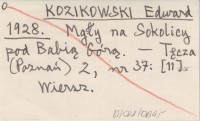 KOZIKOWSKI Edward
1928. Mgły na Sokolicy
pod Babią Górą. — Tęcza
(Poznań) 2, nr 37: [11].
Wiersz.